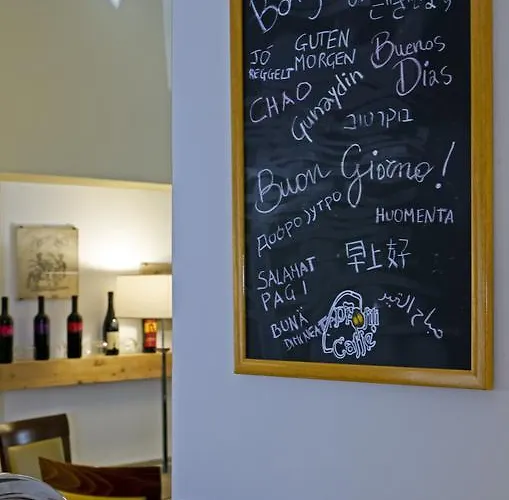 JÓ
REGGELT
GUTEN
MORGEN
Buenos
Dias
CHAO
Gunaydin
בוקר טוב
Buon Giorno!
Добро јутро
HUOMENTA
早上好
SALAMAT
PAGI
صباح الخير
BUNĂ
DIMINEAȚA
Caffe